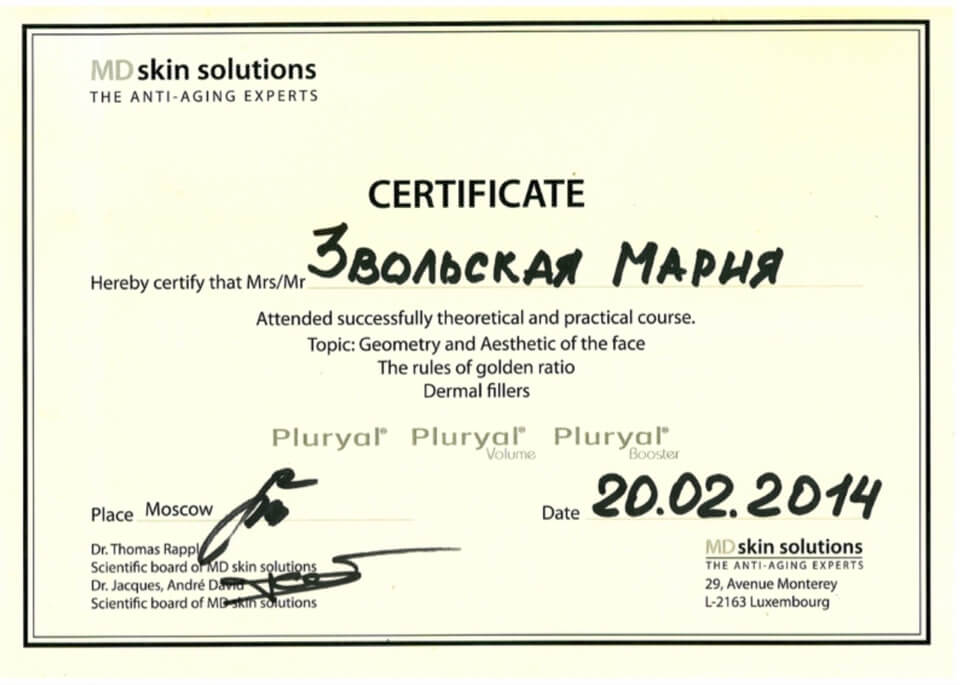 MD skin solutions
THE ANTI-AGING EXPERTS
CERTIFICATE
Hereby certify that Mrs/Mr Звольская Мария
Attended successfully theoretical and practical course.
Topic: Geometry and Aesthetic of the face
The rules of golden ratio
Dermal fillers
Pluryal® Pluryal® Volume Pluryal® Booster
Place Moscow
Date 20.02.2014
Dr. Thomas Rappl
Scientific board of MD skin solutions
Dr. Jacques, André David
Scientific board of MD skin solutions
MD skin solutions
THE ANTI-AGING EXPERTS
29, Avenue Monterey
L-2163 Luxembourg